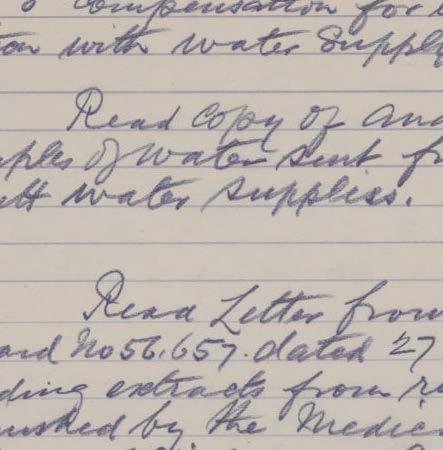 o compensation for
ton with water supply
Read copy of Ana
mples of water sent fr
water supplies.
Read Letter from
oard No 56.657. dated 27
ding extracts from re
nished by the Medic